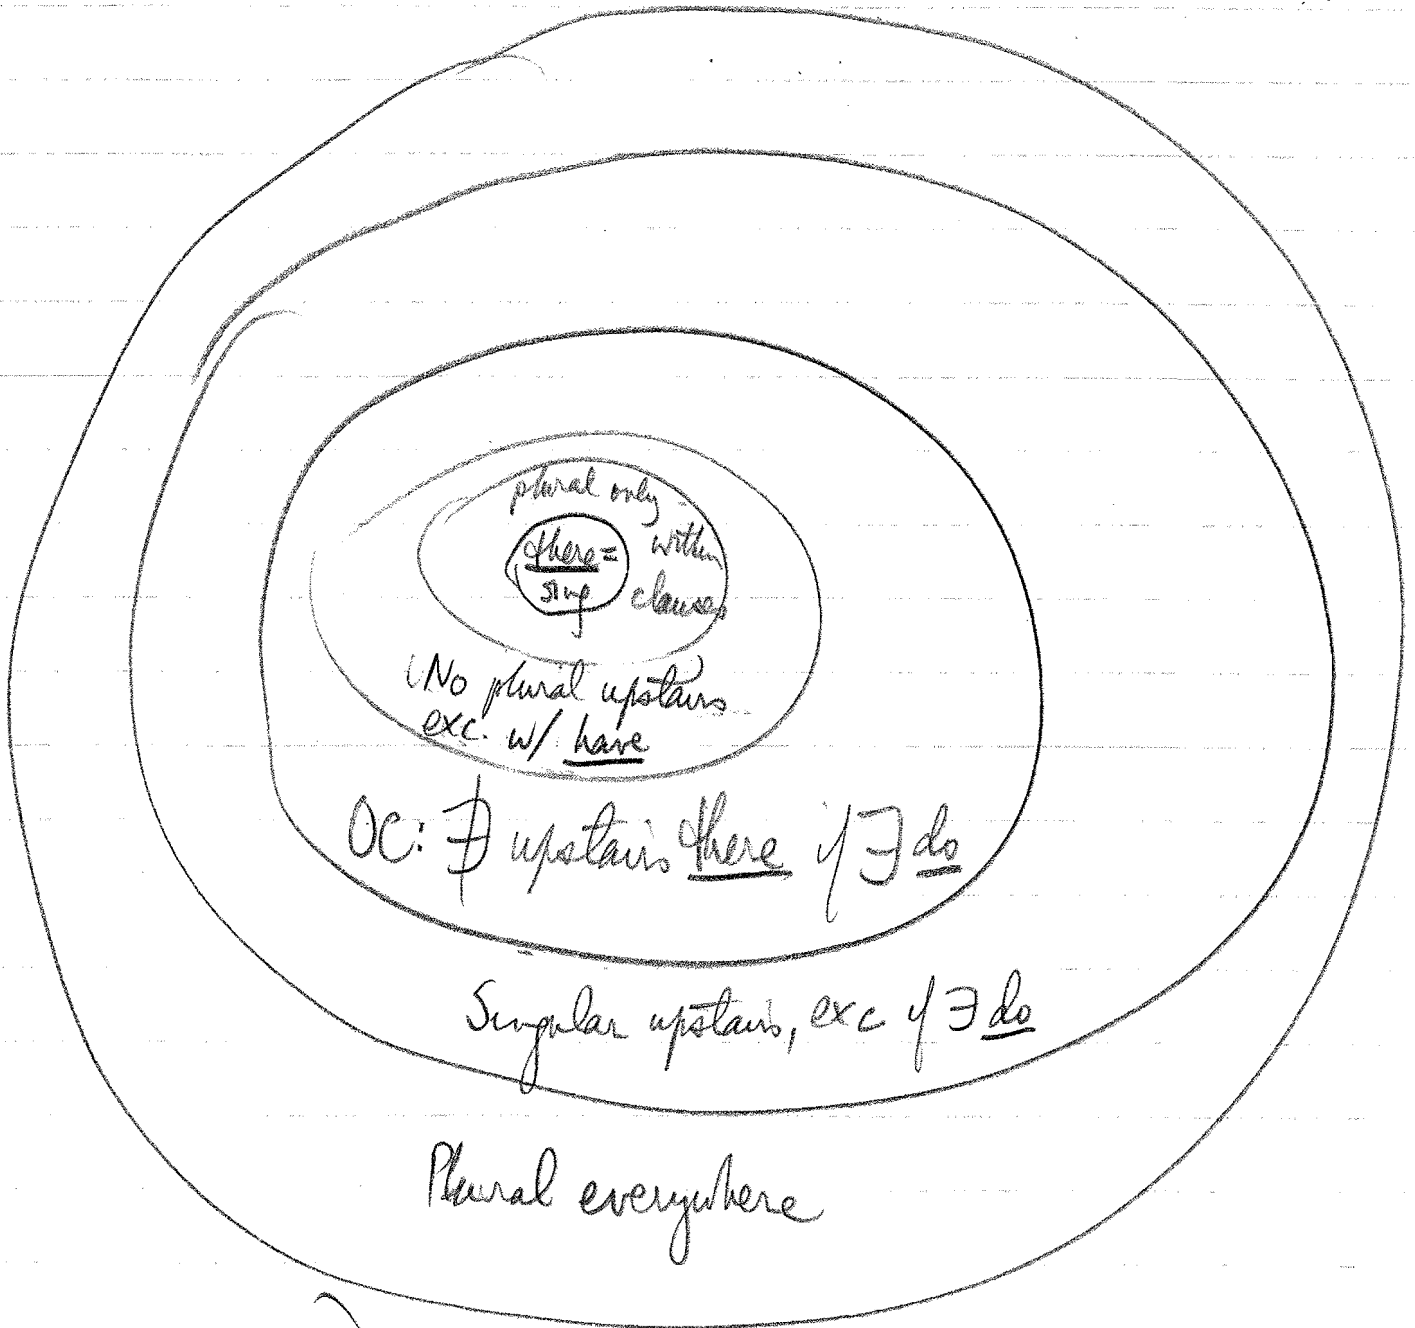 plural only
within
clauses
there =
sing
No plural upstairs
exc. w/ have
OC: ∄ upstairs there if ∃ do
Singular upstairs, exc if ∃ do
Plural everywhere